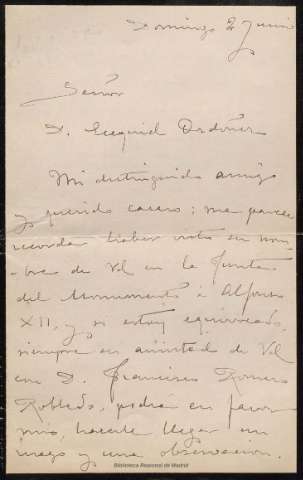 Domingo 2 Junio
Señor
D. Ezequiel Ordóñez
Mi distinguido amigo
y querido casero; me parece
recordar haber visto su nom-
bre de Vd en la Junta
del Monumento á Alfonso
XII, y si estoy equivocado,
siempre su amistad de Vd
con D. Francisco Romero
Robledo, podrá en favor
mío, hacerle llegar un
ruego y una observación.
Biblioteca Regional de Madrid